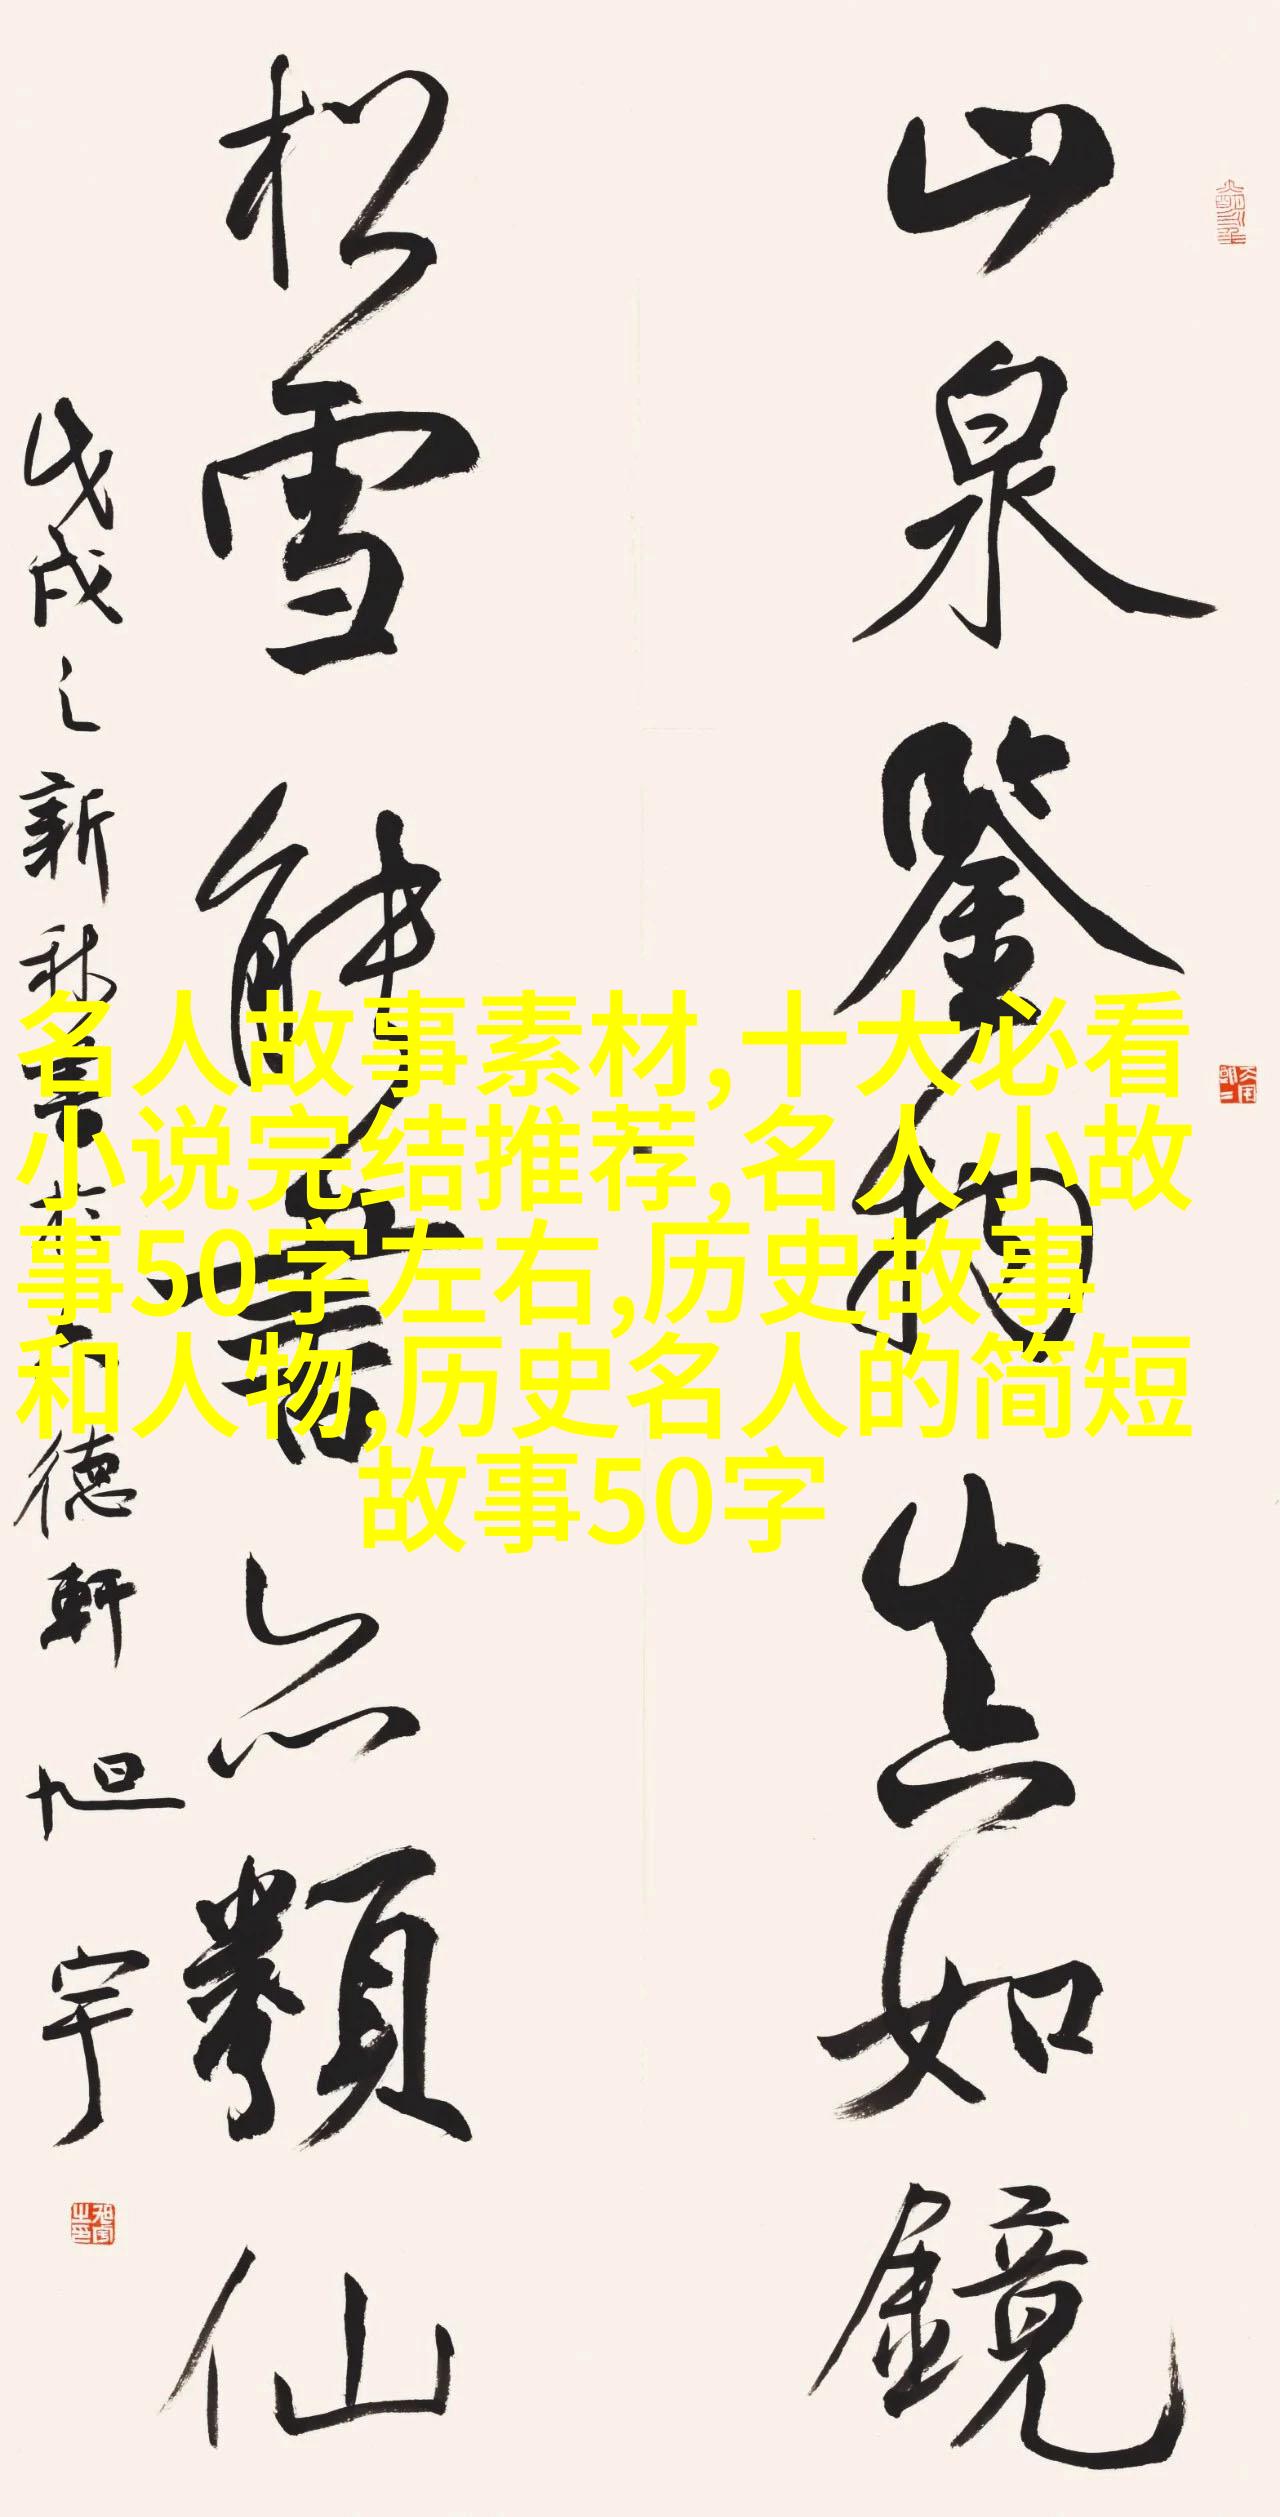 山泉鑒物真如鏡
松雪能書亦類仙
戊戌之新秋
德軒
旭宇
名人故事素材,十大必看
小说完结推荐,名人小故
事50字左右,历史故事
和人物,历史名人的简短
故事50字